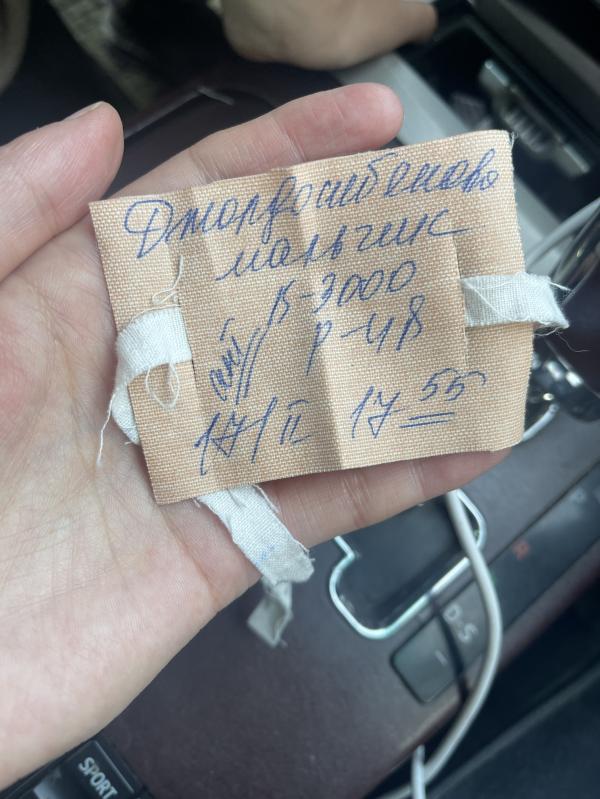 Джолдошбекова
мальчик
В-3000
Р-48
17/II 17 55
D-S
SPORT